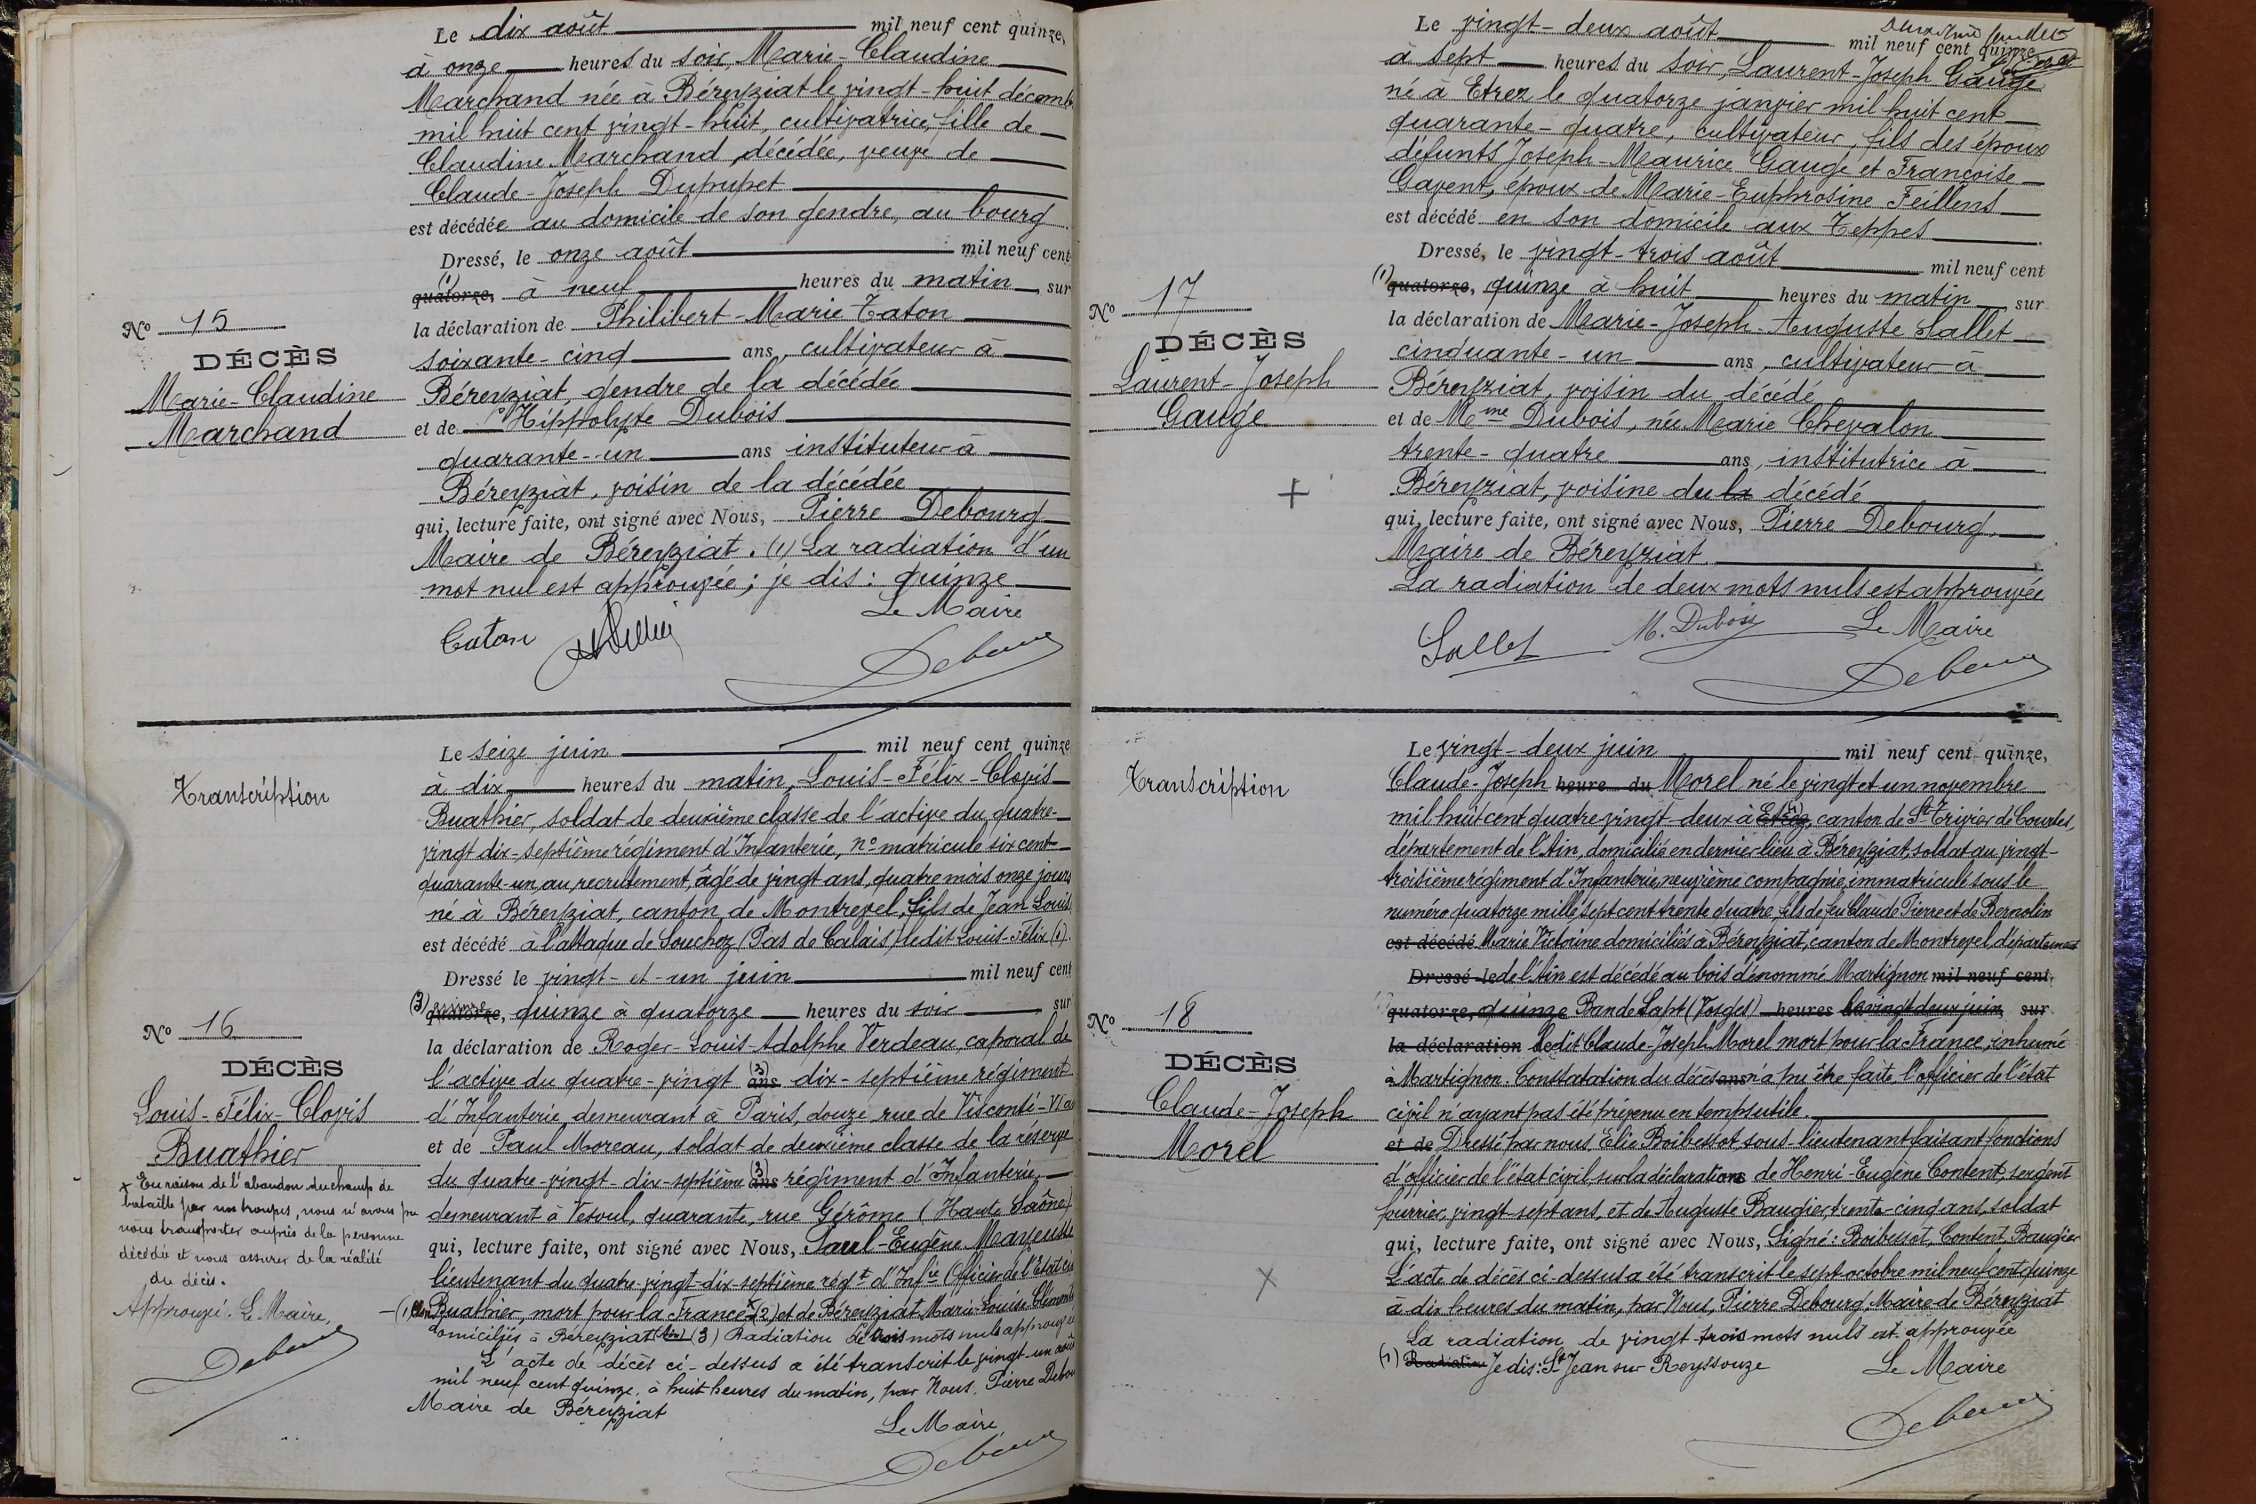 Le dix août mil neuf cent quinze,
à onze heures du soir, Marie-Claudine
Marchand née à Béreyziat le vingt-huit décemb
mil huit cent vingt-huit, cultivatrice, fille de
Claudine Marchand, décédée, veuve de
Claude-Joseph Dupupet
est décédée au domicile de son gendre, au bourg
Dressé, le onze août mil neuf cent
(1) quatorze, à neuf heures du matin, sur
la déclaration de Philibert-Marie Caton
soixante-cinq ans, cultivateur à
Béreyziat, gendre de la décédée
et de Hippolyte Dubois
quarante-un ans instituteur à
Béreyziat, voisin de la décédée
qui, lecture faite, ont signé avec Nous, Pierre Debourg
Maire de Béreyziat. (1) La radiation d'un
mot nul est approuvée; je dis: quinze
Le Maire
Caton
Nº 15
DÉCÈS
Marie-Claudine
Marchand
Transcription
Nº 16
DÉCÈS
Louis-Félix-Clovis
Buathier
+ En raison de l'abandon du champ de
bataille par nos troupes, nous n'avons pu
nous transporter auprès de la personne
décédée et nous assurer de la réalité
du décès.
Approuvé. Le Maire,
Le seize juin mil neuf cent quinze
à dix heures du matin, Louis-Félix-Clovis
Buathier, soldat de deuxième classe de l'active du quatre-
vingt dix-septième régiment d'Infanterie, nº matricule six cent
quarante-un au recrutement, âgé de vingt ans, quatre mois onze jours
né à Béreyziat, canton de Montrevel, fils de Jean Louis
est décédé à l'attaque de Souchez (Pas de Calais) ledit Louis-Félix (1).
Dressé le vingt-et-un juin mil neuf cent
(3) quatorze, quinze à quatorze heures du soir sur
la déclaration de Roger-Louis-Adolphe Verdeau, caporal de
l'active du quatre-vingt (3) ans dix-septième régiment
d'Infanterie, demeurant à Paris, douze, rue de Visconti-VI
et de Paul Moreau, soldat de deuxième classe de la réserve
du quatre-vingt-dix-septième (3) ans régiment d'Infanterie,
demeurant à Vesoul, quarante, rue Gérôme (Haute Saône)
qui, lecture faite, ont signé avec Nous, Paul-Eugène
lieutenant du quatre-vingt-dix-septième régt d'Infie Officier de l'Etat
(1) Buathier, mort pour la France + (2) et de Béreyziat Marie-Louise
domiciliés à Béreyziat (3) Radiation de trois mots nuls approuvé
L'acte de décès ci-dessus a été transcrit le vingt-un août
mil neuf cent quinze, à huit heures du matin, par Nous, Pierre Debou
Maire de Béreyziat
Le Maire
Le vingt-deux août mil neuf cent quinze
à sept heures du soir, Laurent-Joseph Gauge
né à Etrez le quatorze janvier mil huit cent
quarante-quatre, cultivateur, fils des époux
défunts Joseph-Maurice Gauge et Françoise
Gavent, époux de Marie-Euphrosine Feillens
est décédé en son domicile aux Teppes
Dressé, le vingt-trois août mil neuf cent
(1) quatorze, quinze à huit heures du matin sur
la déclaration de Marie-Joseph-Auguste Sallet
cinquante-un ans, cultivateur à
Béreyziat, voisin du décédé
et de Mme Dubois, née Marie Chevalon
trente-quatre ans, institutrice à
Béreyziat, voisine du la décédé
qui, lecture faite, ont signé avec Nous, Pierre Debourg,
Maire de Béreyziat.
La radiation de deux mots nuls est approuvée
Sallet M. Dubois Le Maire
Nº 17
DÉCÈS
Laurent-Joseph
Gauge
+
Transcription
Nº 18
DÉCÈS
Claude-Joseph
Morel
X
Le vingt-deux juin mil neuf cent quinze,
Claude-Joseph heure du Morel né le vingt et un novembre
mil huit cent quatre-vingt-deux à Etrez (1), canton de St Trivier de Courtes,
département de l'Ain, domicilié en dernier lieu à Béreyziat, soldat au vingt-
troisième régiment d'Infanterie, neuvième compagnie, immatriculé sous le
numéro quatorze mille sept cent trente quatre, fils de feu Claude Pierre et de Bernolin
est décédé Marie Victorine domiciliés à Béreyziat, canton de Montrevel, département
Dressé le de l'Ain est décédé au bois dénommé Martignon mil neuf cent
quatorze, quinze Ban de Sapt (Vosges) heures le vingt deux juin sur
la déclaration ledit Claude-Joseph Morel mort pour la France, inhumé
à Martignon. Constatation du décès ans n'a pu être faite, l'officier de l'état
civil n'ayant pas été prévenu en temps utile.
et de Dressé par nous Elie Boibessot, sous-lieutenant faisant fonctions
d'officier de l'état civil, sur la déclaration ans de Henri-Eugène Content, sergent
fourrier, vingt-sept ans, et de Auguste Baugier, trente-cinq ans, soldat
qui, lecture faite, ont signé avec Nous, Signé: Boibessot, Content, Baugier
L'acte de décès ci-dessus a été transcrit le sept octobre mil neuf cent quinze
à dix heures du matin, par Nous, Pierre Debourg Maire de Béreyziat
La radiation de vingt-trois mots nuls est approuvée
(1) Radiation Je dis: St Jean sur Reyssouze Le Maire